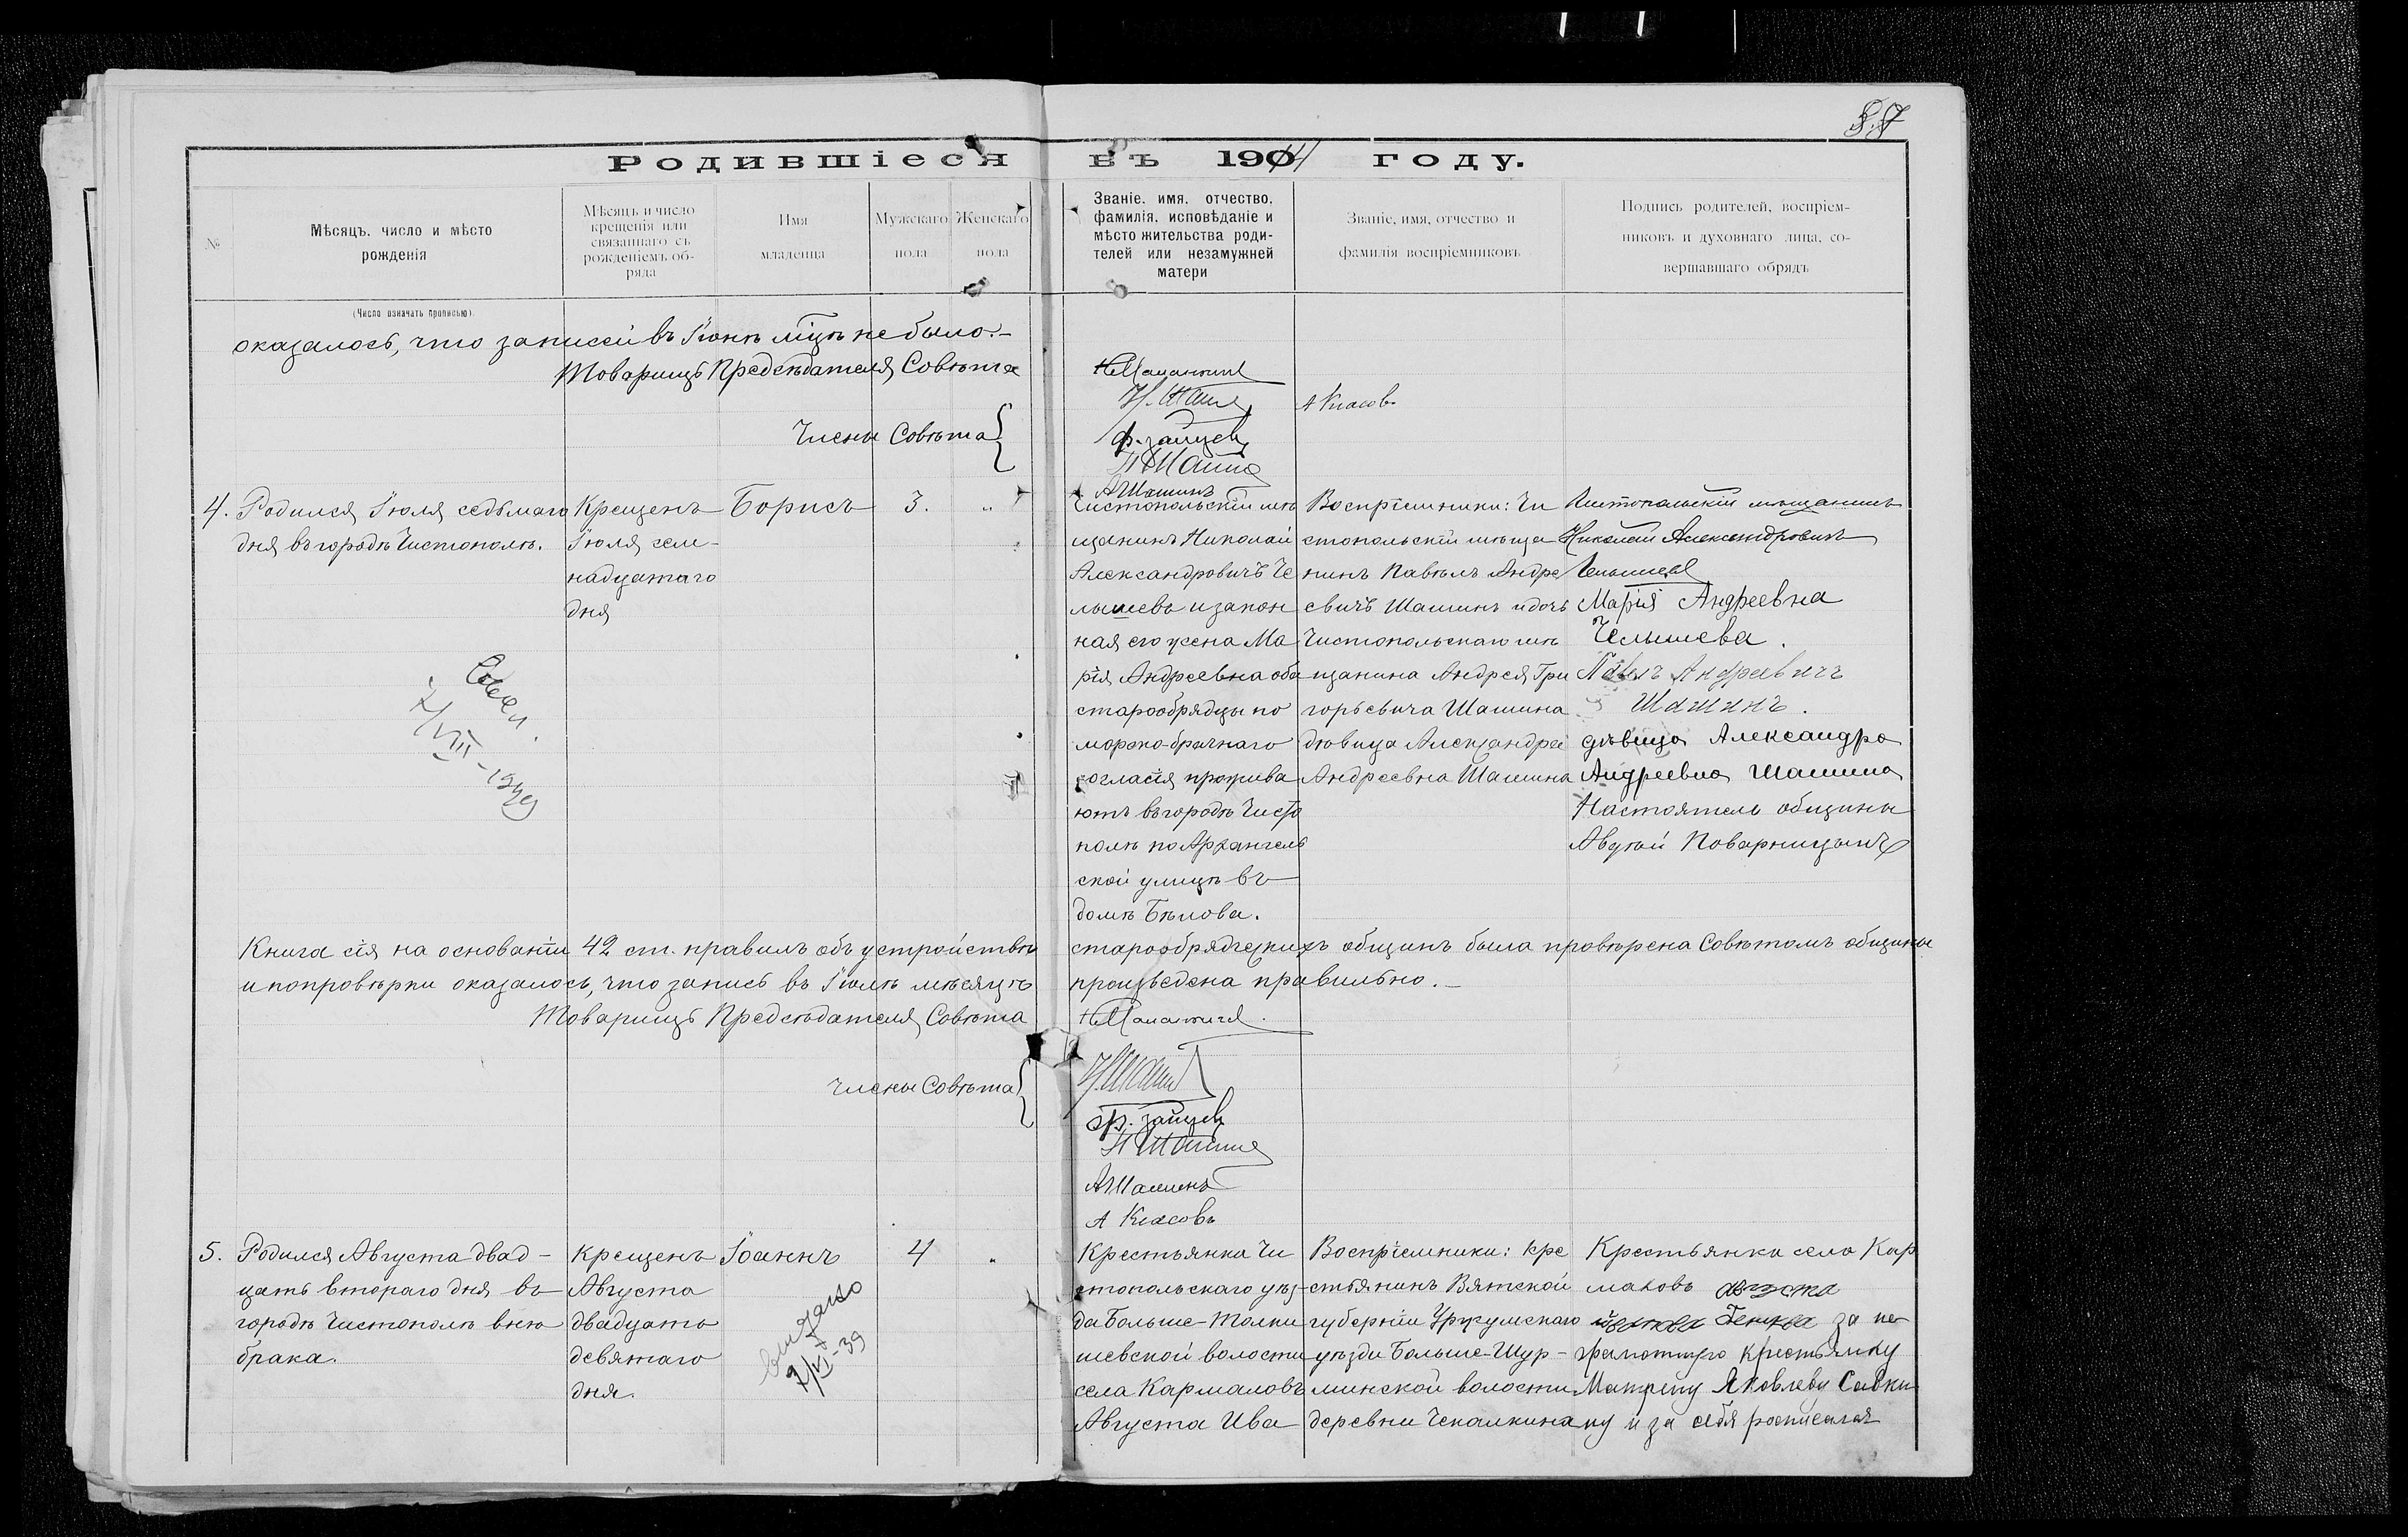 57
Родившіеся въ 1914 году.
№
Мѣсяцъ, число и мѣсто
рожденія
Мѣсяцъ и число
крещенія или
связаннаго съ
рожденіемъ об-
ряда
Имя
младенца
Мужскаго
пола
Женскаго
пола
Званіе, имя, отчество,
фамилія, исповѣданіе и
мѣсто жительства роди-
телей или незамужней
матери
Званіе, имя, отчество и
фамилія воспріемниковъ
Подпись родителей, воспріем-
никовъ и духовнаго лица, со-
вершавшаго обрядъ
(Число означать прописью)
оказалось, что записей въ Іюнѣ мцѣ не было.-
Товарищъ Предсѣдателя Совѣта
Члены Совѣта
Ф. Зайцевъ
А Шашинъ
А Класовъ
4.
Родился Іюля седьмаго
дня въ городѣ Чистополѣ.
Крещенъ
Іюля сем-
надцатаго
дня
Борисъ
3.
"
Чистопольскій мѣ
щанинъ Николай
Александровичъ Че
лышевъ и закон
ная его жена Ма
рія Андреевна оба
старообрядцы по
морско-брачнаго
согласія прожива
ютъ въ городѣ Чисто
полѣ по Архангель
ской улицѣ въ
домѣ Бѣлова.
Воспріемники: Чи
стопольскій мѣща
нинъ Павелъ Андре
евичъ Шашинъ и дочь
Чистопольскаго мѣ
щанина Андрея Гри
горьевича Шашина
дѣвица Александра
Андреевна Шашина
Чистопольскій мѣщанинъ
Николай Александровичъ
Челышевъ
Марія Андреевна
Челышева.
Павелъ Андреевичъ
Шашинъ.
дѣвица Александра
Андреевна Шашина
Настоятель общины
Авдѣй Поварницынъ
Книга сія на основаніи 42 ст. правилъ объ устройствѣ старообрядческихъ общинъ была провѣрена Совѣтомъ общины
и по провѣрки оказалось, что запись въ Іюлѣ мѣсяцѣ произведена правильно.-
Товарищъ Предсѣдателя Совѣта
Члены Совѣта
Ф. Зайцевъ
А Шашинъ
А Класовъ
5.
Родился Августа двад-
цать втораго дня въ
городѣ Чистополѣ внѣ
брака.
Крещенъ
Августа
двадцать
девятаго
дня.
Іоаннъ
выдано
7/VI-39
4
"
Крестьянка Чи
стопольскаго уѣз-
да Больше-Толки
шевской волости
села Кармаловъ
Августа Ива
Воспріемники: кре
стьянинъ Вятской
губерніи Уржумскаго
уѣзда Больше-Шур-
минской волости
деревни Чекалкина
Крестьянка села Кар
маловъ
за не
грамотную крестьянку
Матрену Яковлеву Савки
ну и за себя росписался